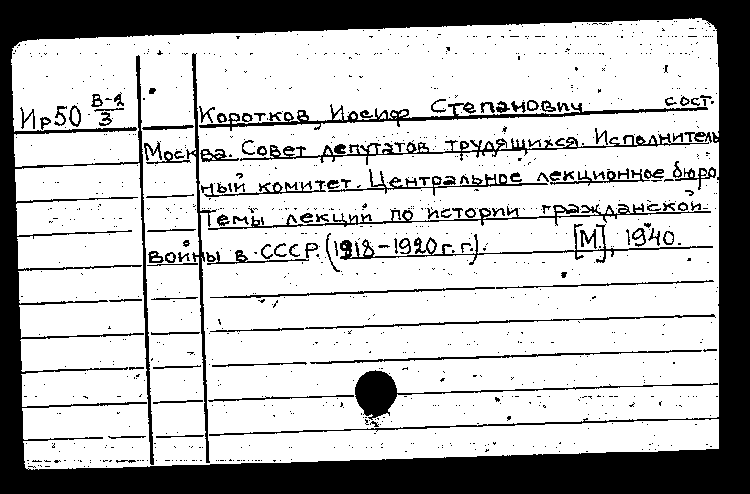 Ир50 В-2/3
Коротков, Иосиф Степанович сост.
Москва. Совет депутатов трудящихся. Исполнитель
ный комитет. Центральное лекционное бюро.
Темы лекций по истории гражданской
войны в СССР. (1918-1920 г.г.). [М], 1940.